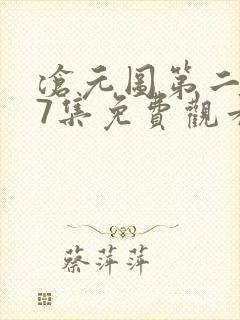 滄元图第二
7集免費觀看
蔡萍萍